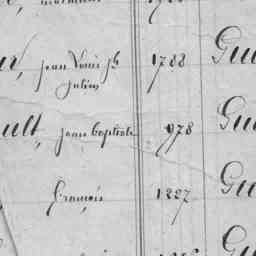 jean Louis jh 1788 Gu
julien
ult, jean baptiste 978 Gu
françois 1227 Gu